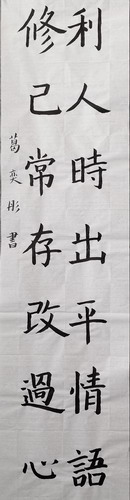 利人時出平情語
修己常存改過心
葛奕彤書